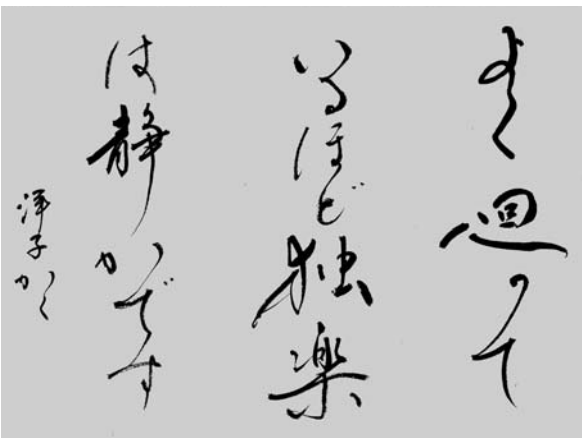 よく廻って
いるほど独楽
は静かです
洋子かく